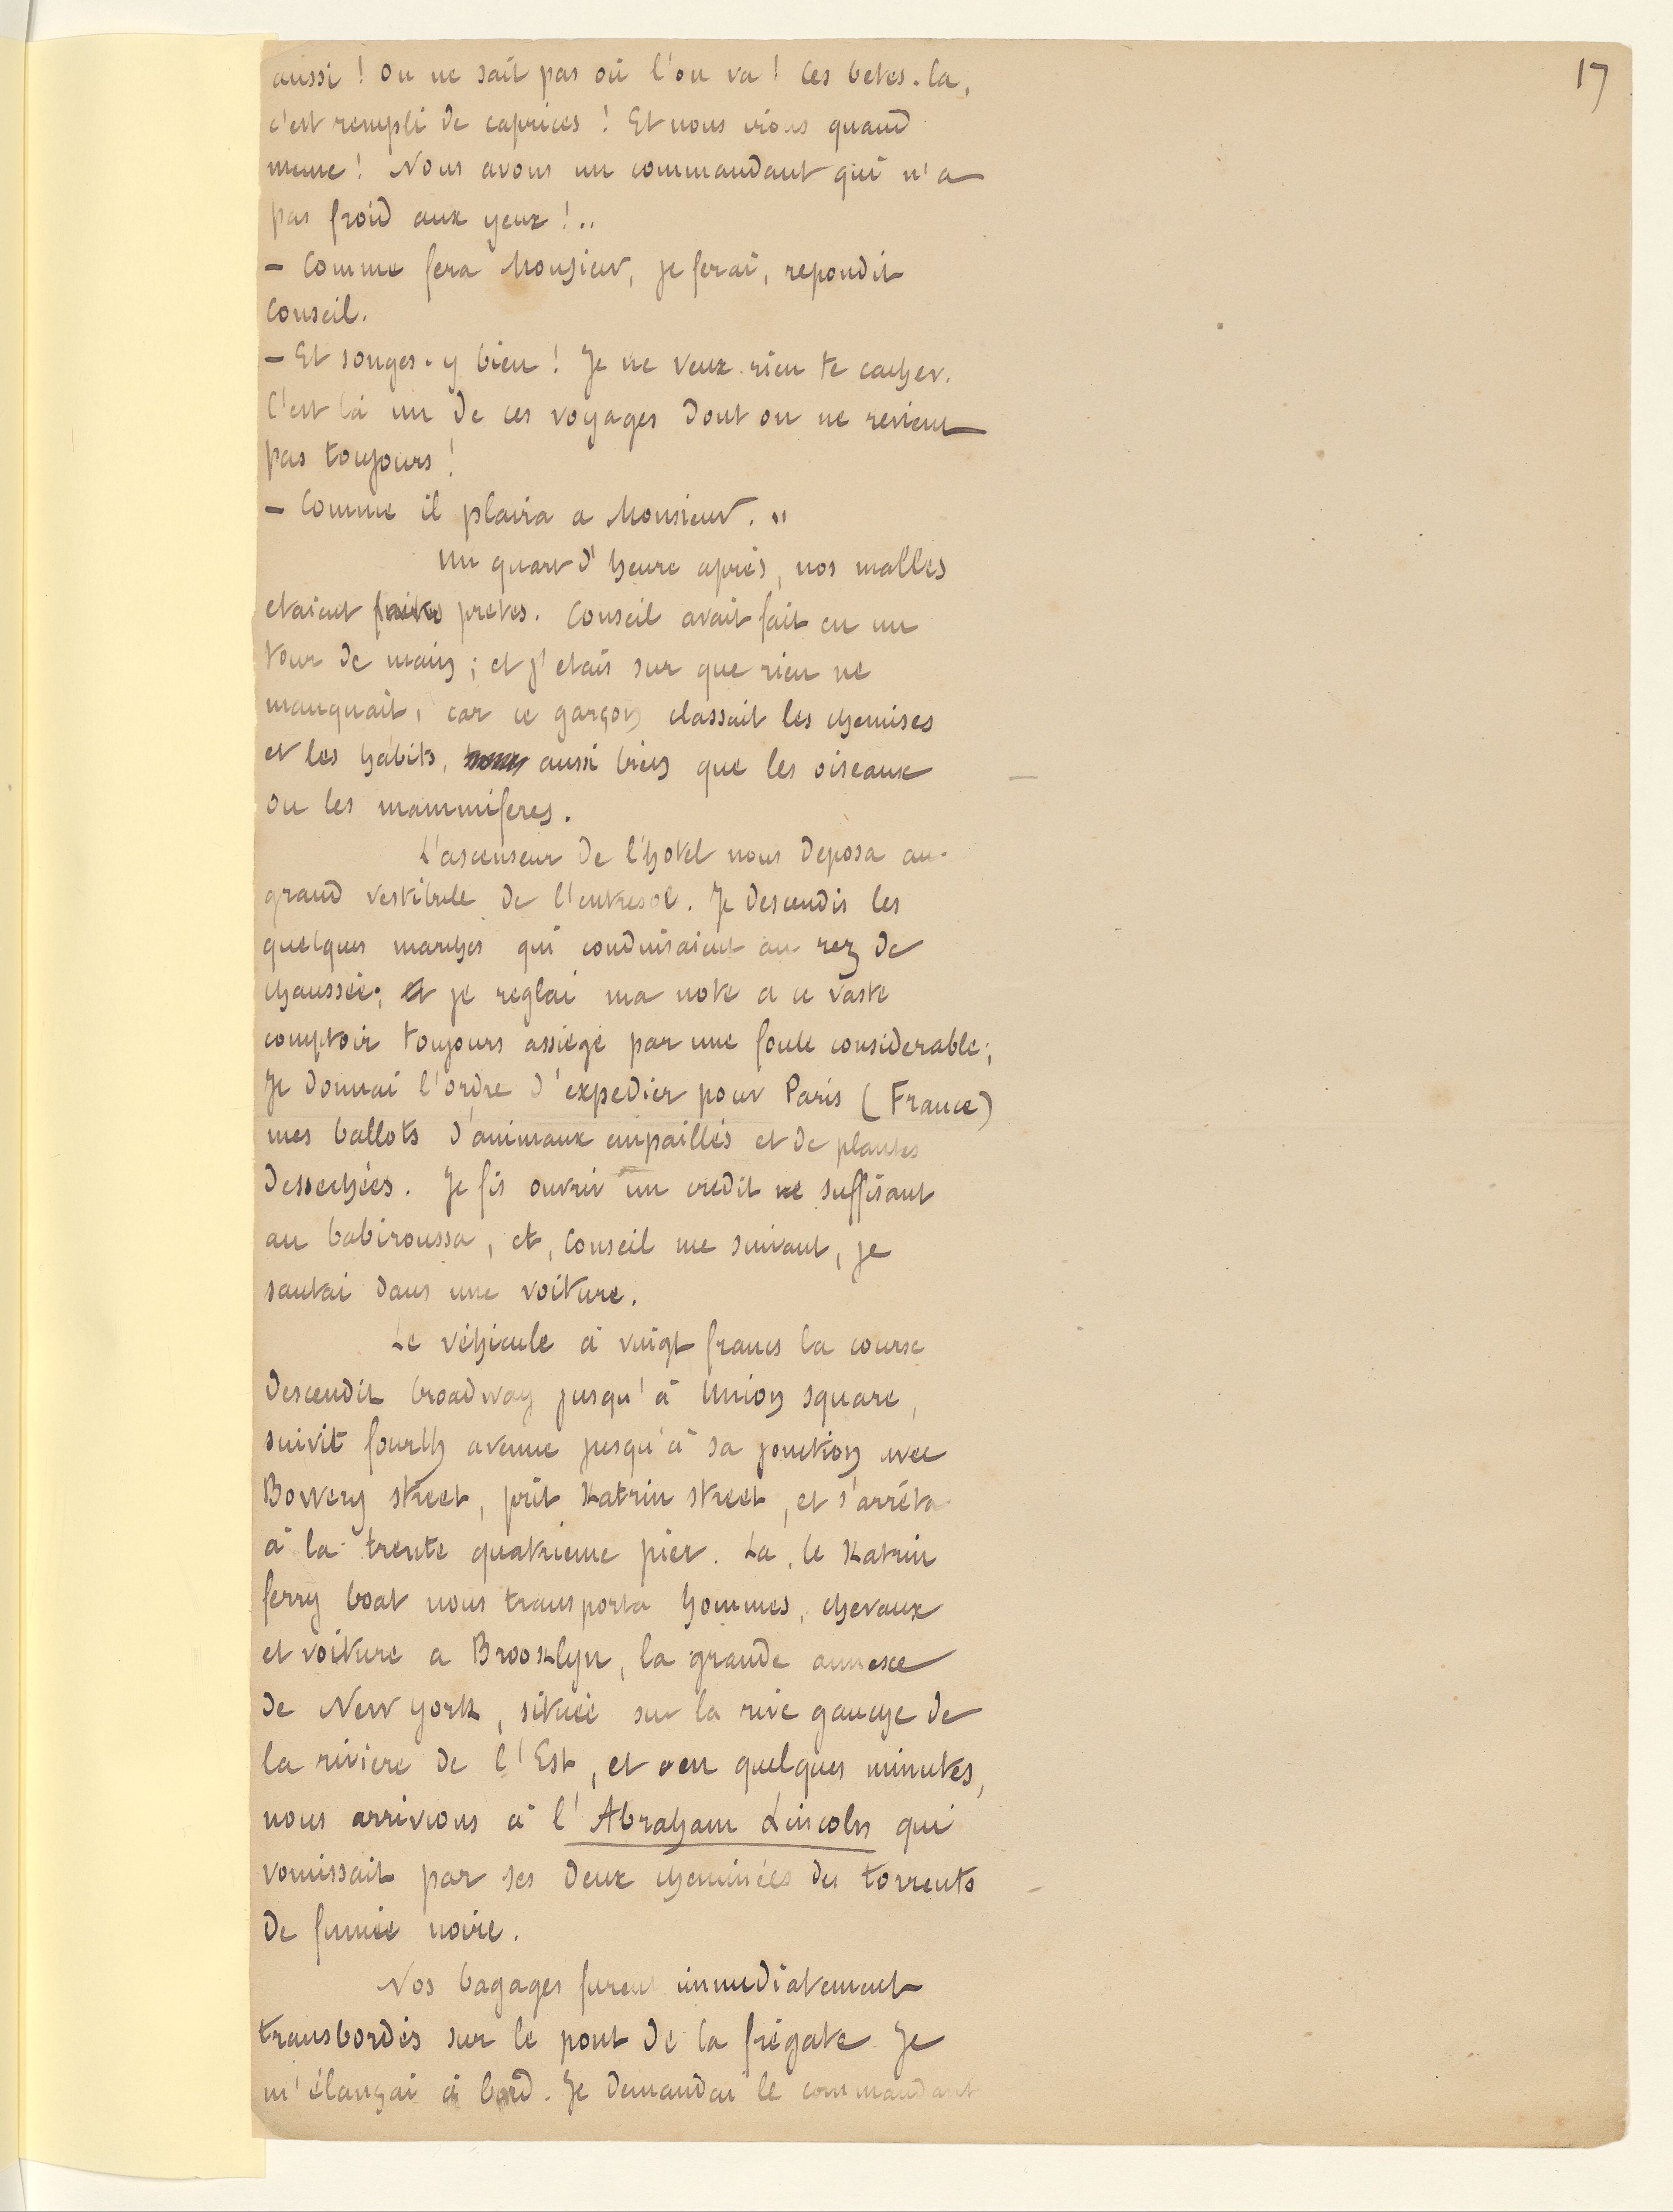 17
aussi ! On ne sait pas où l'on va ! Ces betes-la,
c'est rempli de caprices ! Et nous irons quand
meme ! Nous avons un commandant qui n'a
pas froid aux yeux !..
— Comme fera Monsieur, je ferai, repondit
Conseil.
— Et songes-y bien ! Je ne veux rien te cacher.
C'est là un de ces voyages dont on ne revient
pas toujours !
— Comme il plaira a Monsieur. "
Un quart d'heure après, nos malles
etaient faites pretes. Conseil avait fait en un
tour de main ; et j'etais sur que rien ne
manquait, car ce garçon classait les chemises
et les habits, aussi bien que les oiseaux
ou les mammiferes.
L'ascenseur de l'hotel nous deposa au
grand vestibule de l'entresol. Je descendis les
quelques marches qui conduisaient au rez de
chaussée ; et je reglai ma note a ce vaste
comptoir toujours assiégé par une foule considerable ;
Je donnai l'ordre d'expedier pour Paris (France)
mes ballots d'animaux empaillés et de plantes
dessechées. Je fis ouvrir un credit suffisant
au babiroussa, et, Conseil me suivant, je
sautai dans une voiture.
Le véhicule à vingt francs la course
descendit broadway jusqu'à Union square,
suivit fourth avenue jusqu'à sa jonction avec
Bowery street, prit Katrin street, et s'arrêta
à la trente quatrieme pier. La, le Katrin
ferry boat nous transporta hommes, chevaux
et voiture a Brooklyn, la grande annexe
de New york, située sur la rive gauche de
la riviere de l'Est, et en quelques minutes,
nous arrivions à l'Abraham Lincoln qui
vomissait par ses deux cheminées des torrents
de fumée noire.
Nos bagages furent immediatement
transbordés sur le pont de la frégate Je
m'élançai à bord. Je demandai le commandant